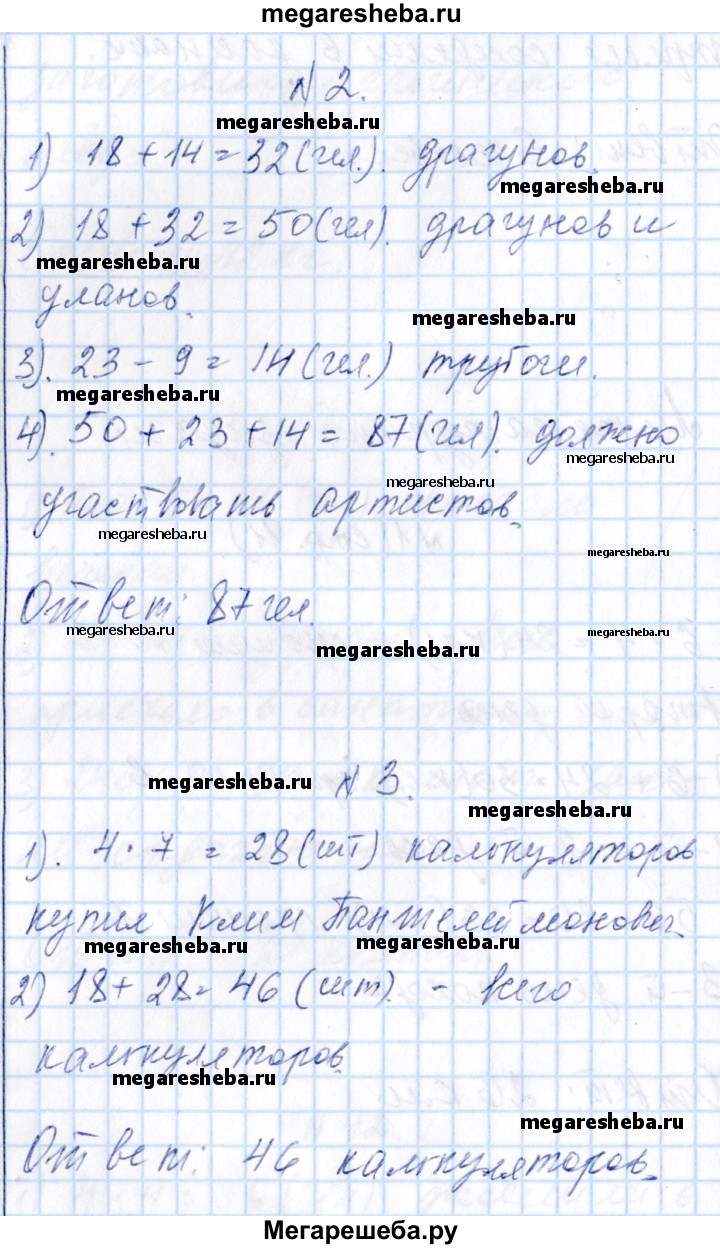 megaresheba.ru
N 2.
megaresheba.ru
1) 18 + 14 = 32 (чел.). драгунов.
megaresheba.ru
2) 18 + 32 = 50 (чел). драгунов и
megaresheba.ru
уланов.
megaresheba.ru
3). 23 - 9 = 14 (чел.) трубачи.
megaresheba.ru
4). 50 + 23 + 14 = 87 (чел). должно
megaresheba.ru
megaresheba.ru
участвовать артистов.
megaresheba.ru
megaresheba.ru
Ответ: 87 чел.
megaresheba.ru
megaresheba.ru
megaresheba.ru
N 3.
megaresheba.ru
megaresheba.ru
1). 4 · 7 = 28 (шт) калькуляторов
купил Клим Пантелеймонович
megaresheba.ru
megaresheba.ru
2) 18 + 28 = 46 (шт). - всего
калькуляторов.
megaresheba.ru
megaresheba.ru
Ответ: 46 калькуляторов.
Мегарешеба.ру